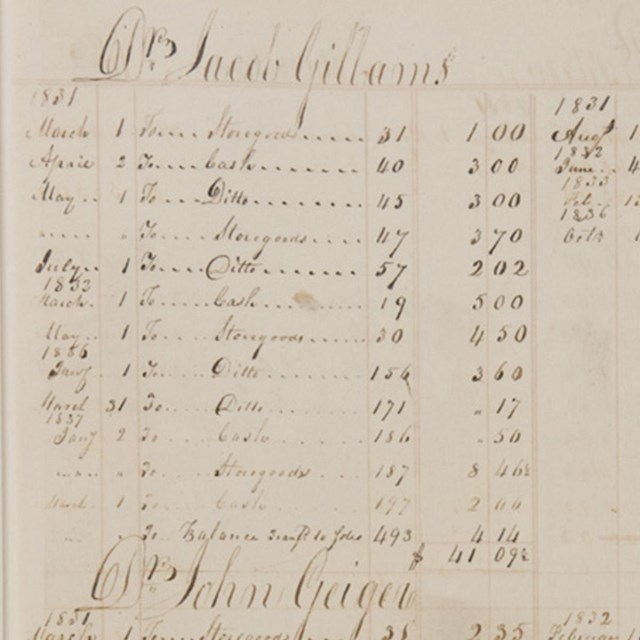 Dr. Jacob Gilliams
1831 1831
March 1 To Storegoods 31 1 00 Augt 1
1832
April 2 To Cash 40 3 00 June 4
May 1 To Ditto 45 3 00
1836
" " To Storegoods 47 3 70 Octr
July 1 To Ditto 57 2 02
1833
March 1 To Cash 19 5 00
May 1 To Storegoods 30 4 50
1836
1 To Ditto 156 3 60
March 31 To Ditto 171 " 17
1837
Jany 2 To Cash 186 " 50
" " To Storegoods 187 8 46½
March 1 To Cash 197 2
" To Balance to folio 493 4 14
$ 41 09½
Dr. John Geiger
1831 1832
March 1 To Storegoods 38 2 35